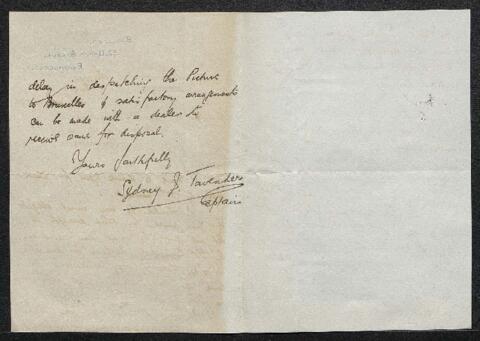 delay in despatching the Picture
to Bruxelles if satisfactory arrangements
can be made with a dealer to
receive same for disposal.
Yours faithfully
Sydney J. Tavender
Captain